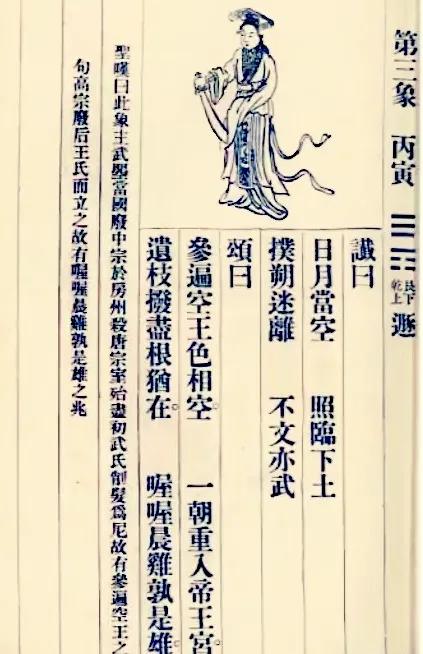 第三象 丙寅 艮下乾上 遯
讖曰
日月當空 照臨下土
撲朔迷離 不文亦武
頌曰
參遍空王色相空。 一朝重入帝王宮。
遺枝撥盡根猶在。 喔喔晨雞孰是雄。
聖嘆曰此象主武曌當國廢中宗於房州殺唐宗室殆盡初武氏削髮爲尼故有參遍空王之
句高宗廢后王氏而立之故有喔喔晨雞孰是雄之兆